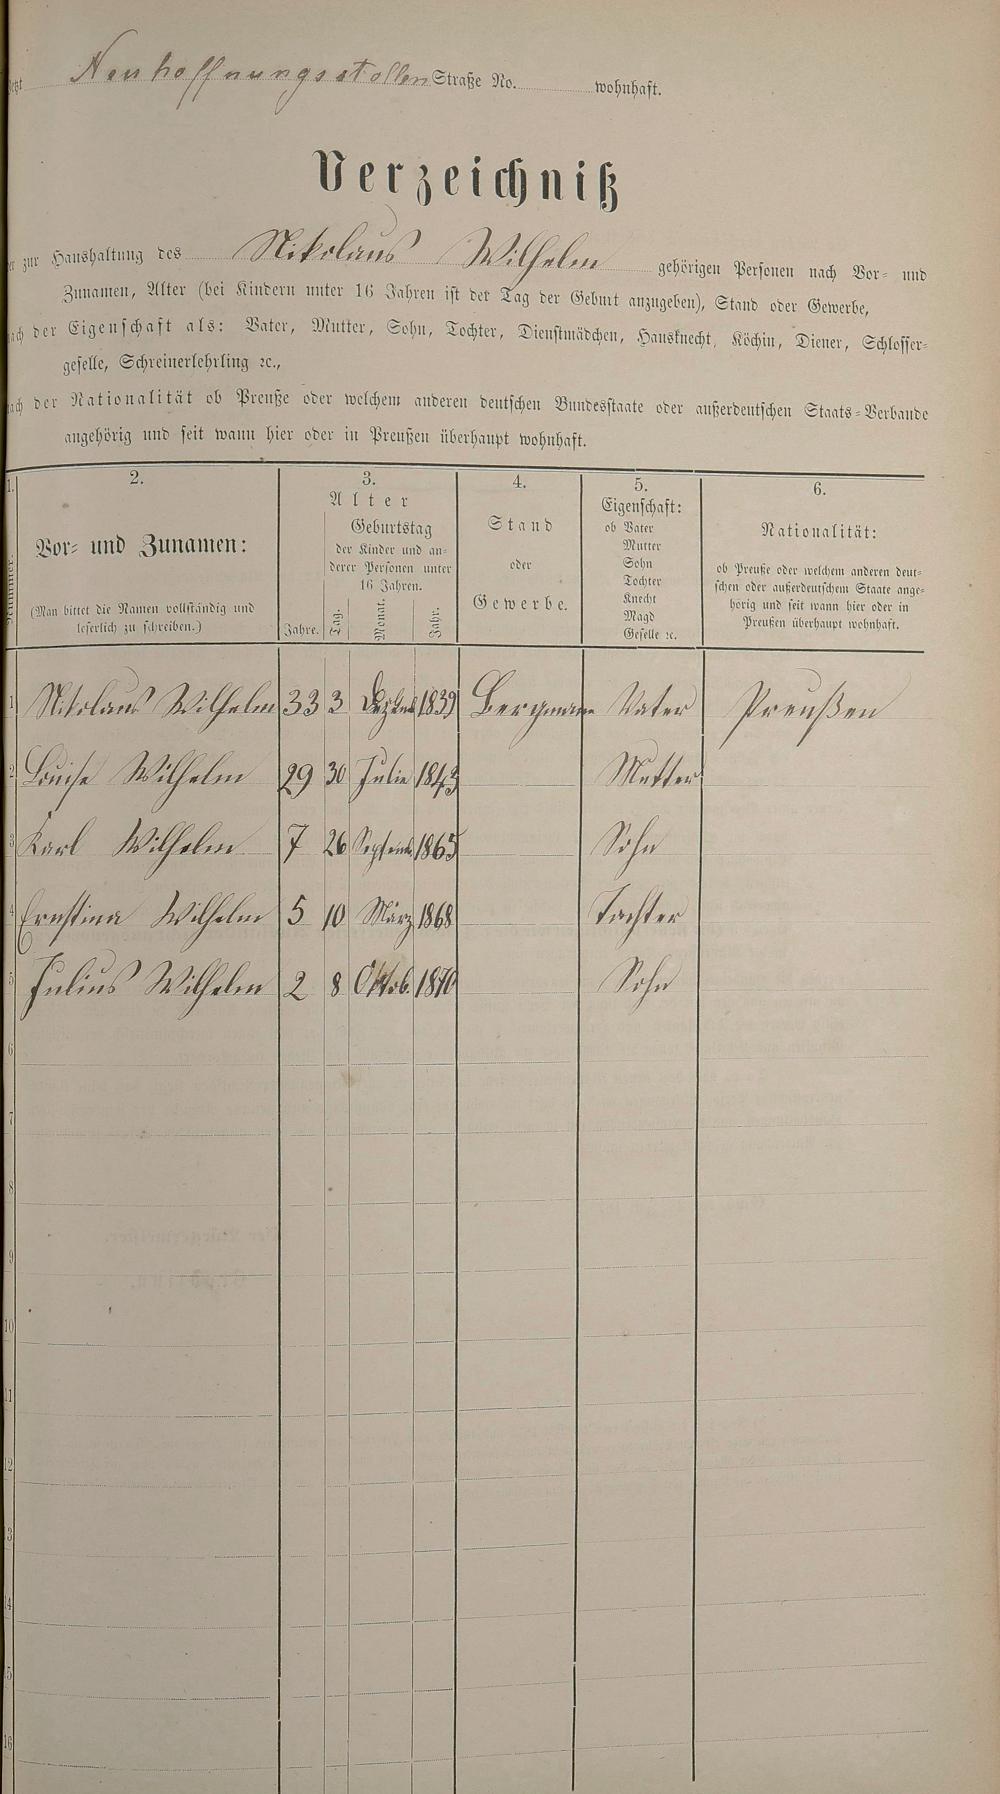 Jetzt Neuhoffnungsstollen Straße No. wohnhaft.
Verzeichniß
der zur Haushaltung des Nikolaus Wilhelm gehörigen Personen nach Vor- und
Zunamen, Alter (bei Kindern unter 16 Jahren ist der Tag der Geburt anzugeben), Stand oder Gewerbe,
nach der Eigenschaft als: Vater, Mutter, Sohn, Tochter, Dienstmädchen, Hausknecht, Köchin, Diener, Schlosser-
geselle, Schreinerlehrling ꝛc.,
nach der Nationalität ob Preuße oder welchem anderen deutschen Bundesstaate oder außerdeutschen Staats-Verbande
angehörig und seit wann hier oder in Preußen überhaupt wohnhaft.
1. 2. 3. 4. 5. 6.
Nummer.
Vor- und Zunamen:
(Man bittet die Namen vollständig und
leserlich zu schreiben.)
Alter
Geburtstag
der Kinder und an-
derer Personen unter
16 Jahren.
Jahre. Tag. Monat. Jahr.
Stand
oder
Gewerbe.
Eigenschaft:
ob Vater
Mutter
Sohn
Tochter
Knecht
Magd
Geselle ꝛc.
Nationalität:
ob Preuße oder welchem anderen deut-
schen oder außerdeutschem Staate ange-
hörig und seit wann hier oder in
Preußen überhaupt wohnhaft.
1 Nikolaus Wilhelm 33 3 1839 Bergmann Vater Preußen
2 Louise Wilhelm 29 30 Julie 1843 Mutter
3 Karl Wilhelm 7 26 Septemb. 1865 Sohn
4 Ernstina Wilhelm 5 10 März 1868 Tochter
5 Julius Wilhelm 2 8 Oktob. 1870 Sohn
6
7
8
9
10
11
12
13
14
15
16